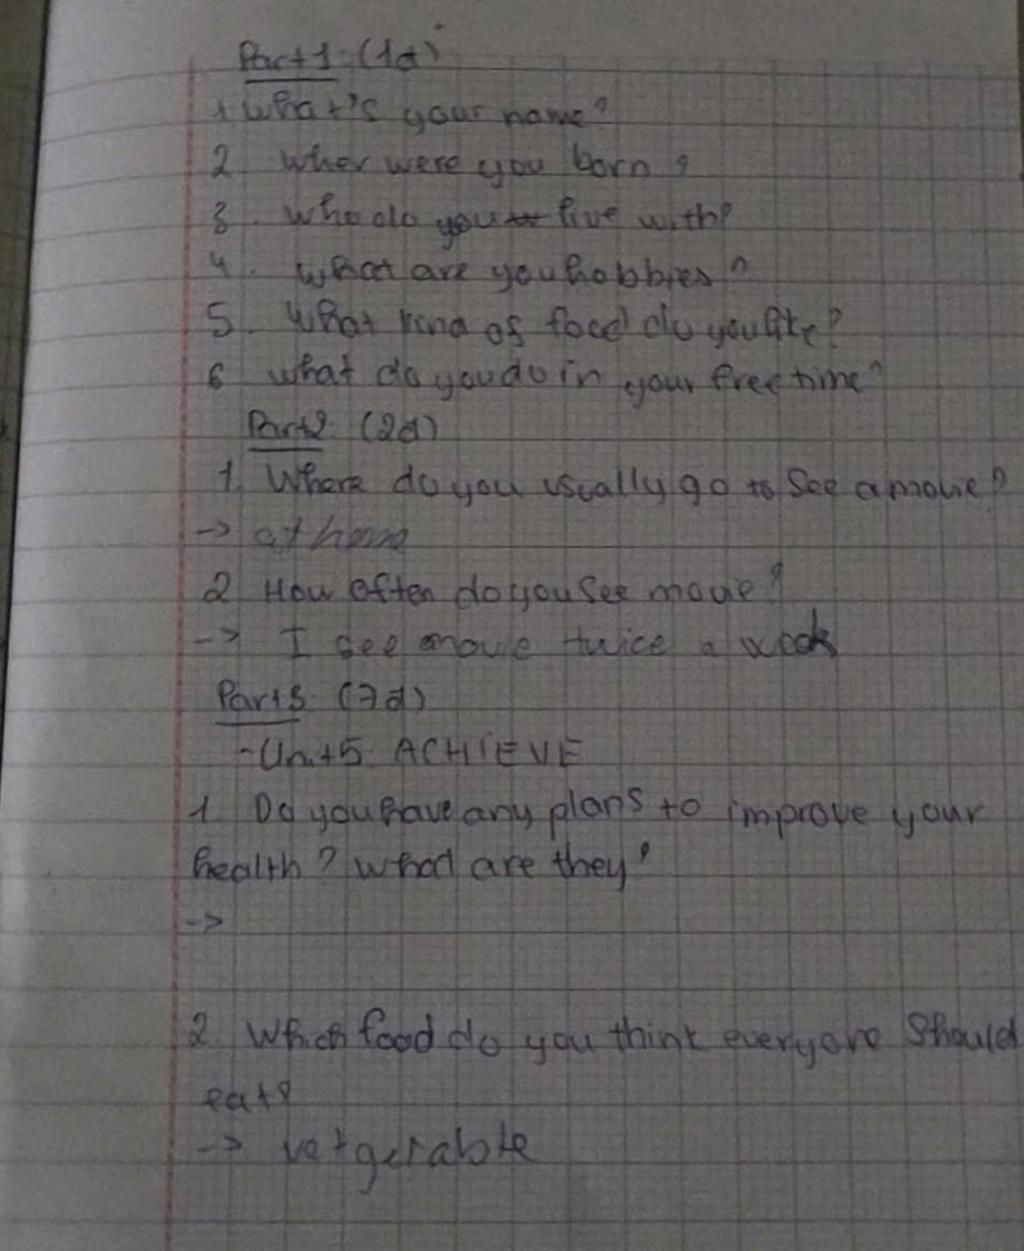 Part 1 (1đ)
1 What's your name?
2 Wher were you born?
3. Who do you live with?
4. What are you hobbies?
5. What kind of food do you like?
6 what do you do in your free time?
Part 2 (2đ)
1. Where do you usually go to see a movie?
-> at home
2 How often do you see movie?
-> I see movie twice a week
Part 3 (7đ)
- Unit 5 ACHIEVE
1. Do you have any plans to improve your
health? What are they?
->
2. Which food do you think everyone should
eat?
-> vetgerable